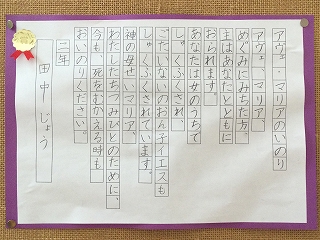 アヴェ・マリアのいのり
アヴェ、マリア、
めぐみにみちた方、
主はあなたとともに
おられます。
あなたは女のうちで
しゅくふくされ、
ごたいないのおん子イエスも
しゅくふくされています。
神の母せいマリア、
わたしたちつみびとのために、
今も、死をむかえる時も
おいのりください。
二年
田中じょう